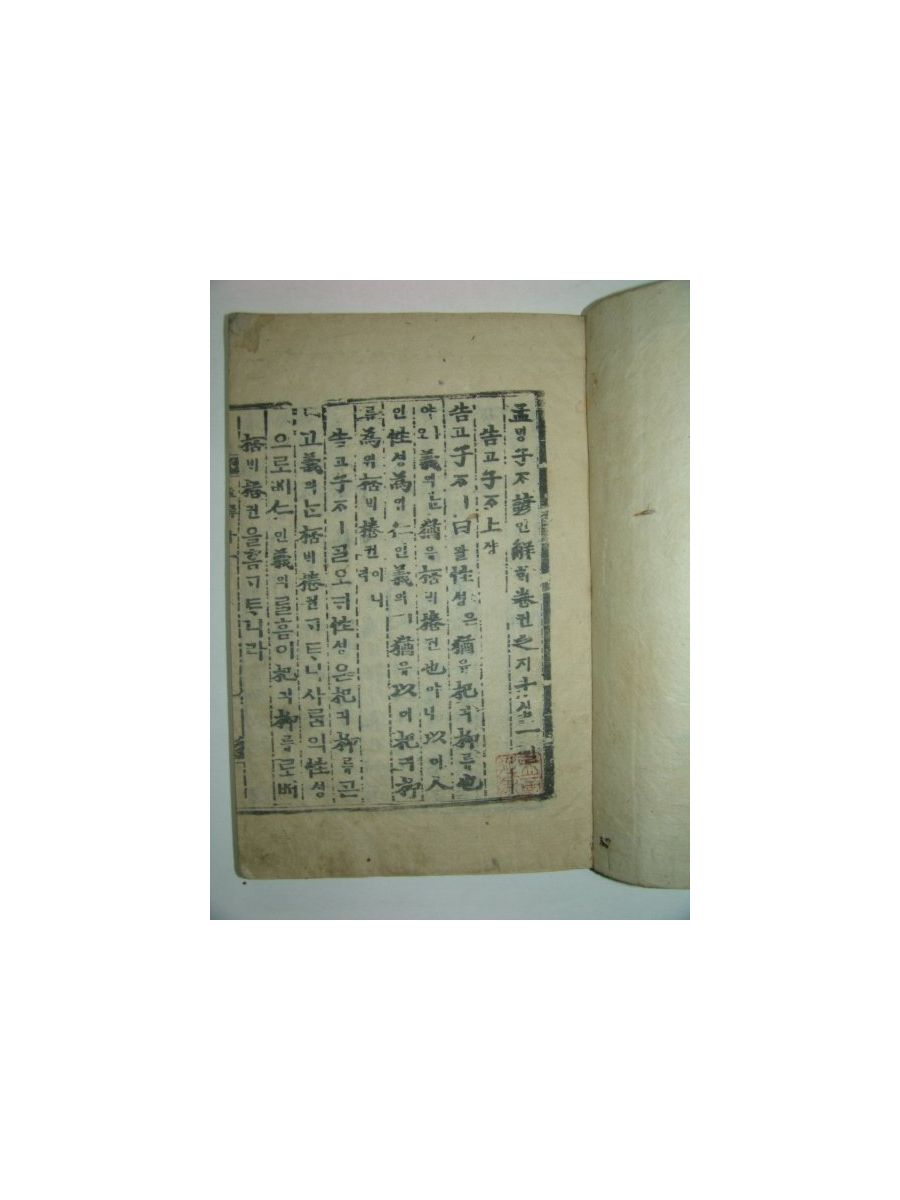 孟멩子ᄌᆞ諺언解ᄒᆡ卷권之지十십一일
告고子ᄌᆞ上샹
告고子ᄌᆞㅣ曰왈性셩은猶유杞긔柳류也
야오義의ᄂᆞᆫ猶유桮ᄇᆡ棬권也야니以이人
인性셩爲위仁인義의ㅣ猶유以이杞긔柳
류爲위桮ᄇᆡ棬권이니라
告고子ᄌᆞㅣ ᄀᆞᆯ오ᄃᆡ性셩은杞긔柳류ᄀᆞᆮ
고義의ᄂᆞᆫ桮ᄇᆡ棬권ᄀᆞᄐᆞ니사ᄅᆞᆷ의性셩
으로ᄡᅥ仁인義의ᄅᆞᆯ홈이杞긔柳류로ᄡᅥ
桮ᄇᆡ棬권을홈ᄀᆞᄐᆞ니라